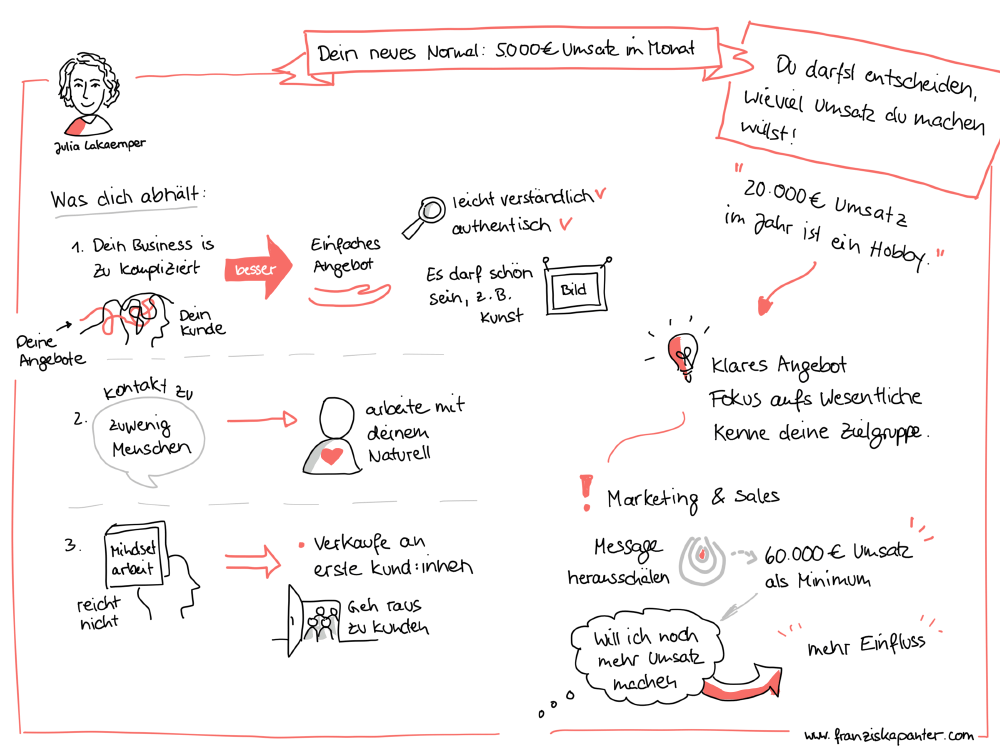 Dein neues Normal: 5000€ Umsatz im Monat
Du darfst entscheiden,
wieviel Umsatz du machen
willst!
Julia Lakaemper
Was dich abhält:
1. Dein Business is
zu kompliziert
Deine
Angebote
Dein
Kunde
besser
Einfaches
Angebot
leicht verständlich
authentisch
Es darf schön
sein, z.B.
Kunst
Bild
2. Kontakt zu
zuwenig
Menschen
arbeite mit
deinem
Naturell
3. Mindset
arbeit
reicht
nicht
• Verkaufe an
erste Kund:innen
Geh raus
zu Kunden
"20.000€ Umsatz
im Jahr ist ein Hobby."
Klares Angebot
Fokus aufs Wesentliche
Kenne deine Zielgruppe.
! Marketing & Sales
Message
herausschälen
60.000€ Umsatz
als Minimum
will ich noch
mehr Umsatz
machen
mehr Einfluss
www.franziskapanter.com